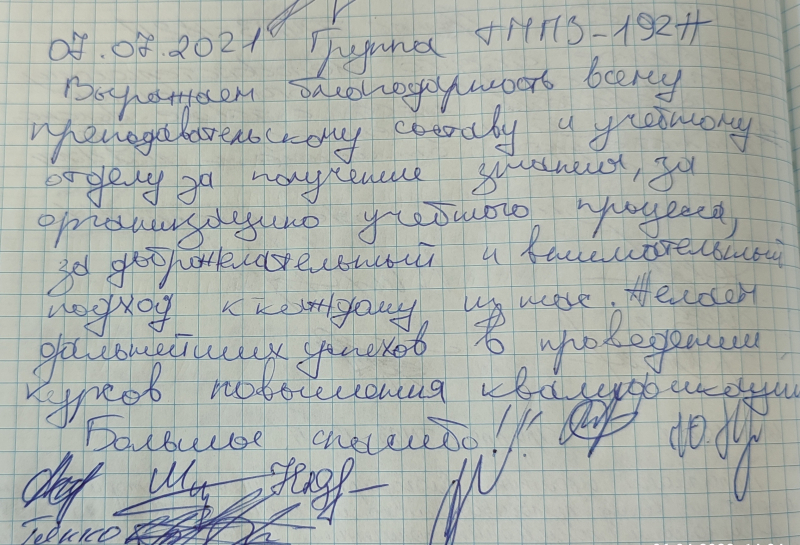 07.07.2021 Группа НМПЗ-192Н
Выражаем благодарность всему
преподавательскому составу и учебному
отделу за получение знания, за
организацию учебного процесса,
за доброжелательный и внимательный
подход к каждому из нас. Желаем
дальнейших успехов в проведении
курсов повышения квалификации
Большое спасибо!!!